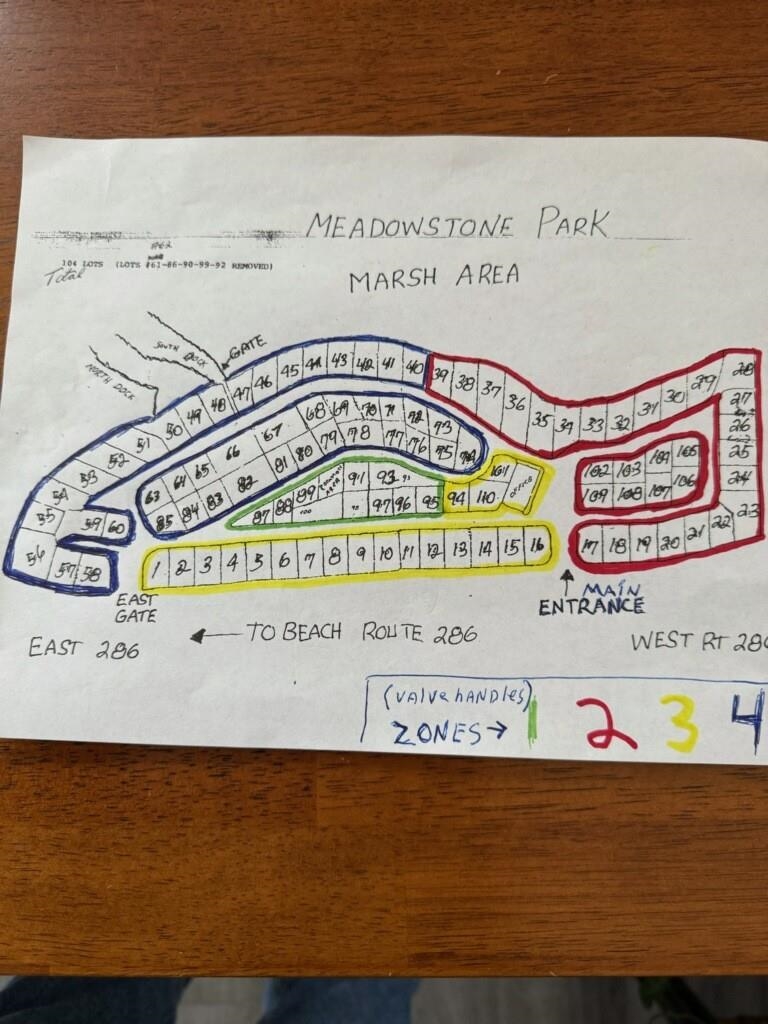 MEADOWSTONE PARK
#62
104 LOTS (LOTS #61-86-90-99-92 REMOVED)
Total
MARSH AREA
GATE
SOUTH DOCK
NORTH DOCK
47 46 45 44 43 42 41 40 39 38 37 36 35 34 33 32 31 30 29 28
27
26
25
24
23
22
48 49 50 51 52 53 54 55 56 57 58 59 60
68 69 70 71 72 73
63 64 65 66 67
85 84 83 82 81 80 79 78 77 76 75 74
91 93
87 88 89 97 96 95 94 110 101 OFFICE
102 103 104 105
109 108 107 106
1 2 3 4 5 6 7 8 9 10 11 12 13 14 15 16
17 18 19 20 21
EAST
GATE
MAIN
ENTRANCE
EAST 286
← TO BEACH ROUTE 286
WEST RT 286
(valve handles)
ZONES → 1 2 3 4